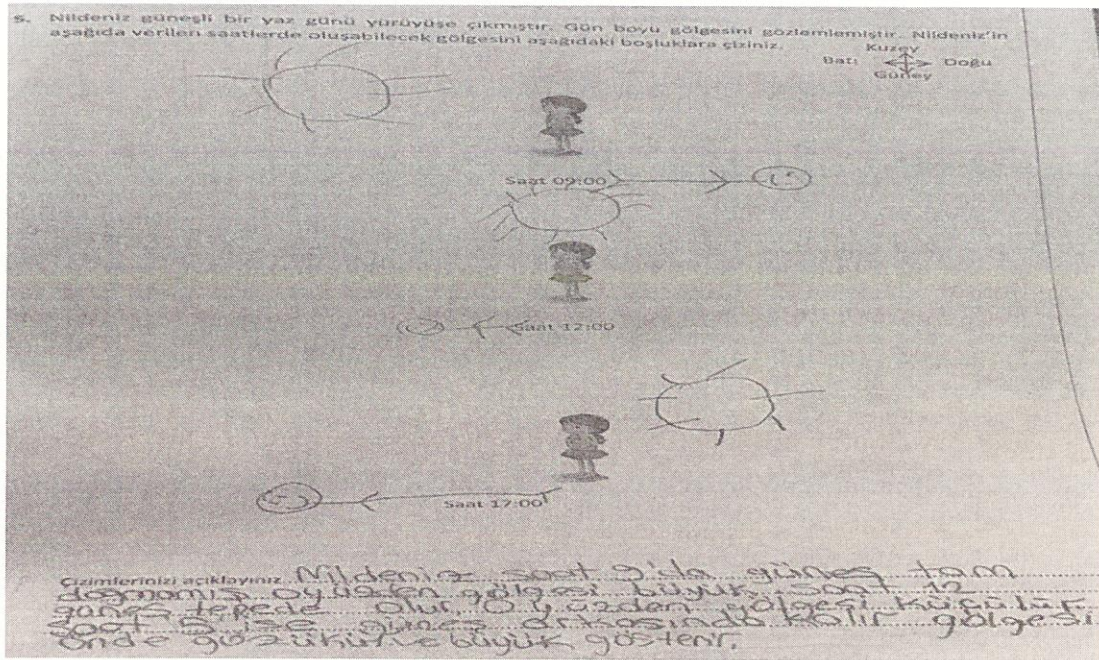 5. Nildeniz güneşli bir yaz günü yürüyüşe çıkmıştır. Gün boyu gölgesini gözlemlemiştir. Nildeniz'in
aşağıda verilen saatlerde oluşabilecek gölgesini aşağıdaki boşluklara çiziniz.
Kuzey
Batı Doğu
Güney
Saat 09:00
Saat 12:00
Saat 17:00
Çizimlerinizi açıklayınız Nildeniz saat 9'da güneş tam
doğmamış o yüzden gölgesi büyük. Saat 12
güneş tepede olur. O yüzden gölgesi küçülür.
Saat 5 ise güneş arkasında kalır gölgesi
önde gözükür e büyük gösterir.